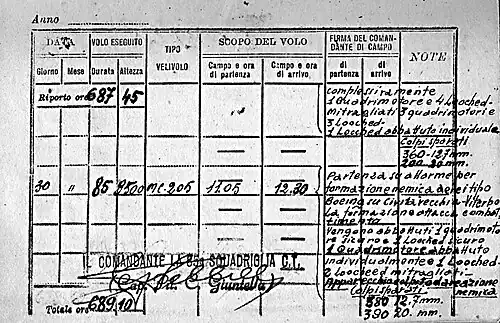 Anno
DATA
VOLO ESEGUITO
TIPO VELIVOLO
SCOPO DEL VOLO
FIRMA DEL COMANDANTE DI CAMPO
NOTE
Giorno Mese Durata Altezza
Campo e ora di partenza
Campo e ora di arrivo
di partenza
di arrivo
Riporto ore 687 45
complessivamente
1 Quadrimotore e 4 Looched-
Mitragliati 3 quadrimotori e
3 Looched-
1 Looched abbattuto individuale
Colpi sparati
360-12,7 mm.
200-20 mm.
30 " 85 8500 MC-205 11.05 12.30
Partenza su allarme per
formazione nemica aerei tipo
Boeing su Civitavecchia-Viterbo
La formazione attacca combat
timento
Vengono abbattuti 1 quadrimoto
re sicuro e 1 Looched sicuro
1 Quadrimotore abbattuto
individualmente e 1 Looched-
2 Loocheed mitragliati-
nemica
Colpi sparati
350 12.7 mm.
390 20 mm.
COMANDANTE LA SQUADRIGLIA C.T.
(Cap. Pil. C. Giuntella)
Totale ore 689,10